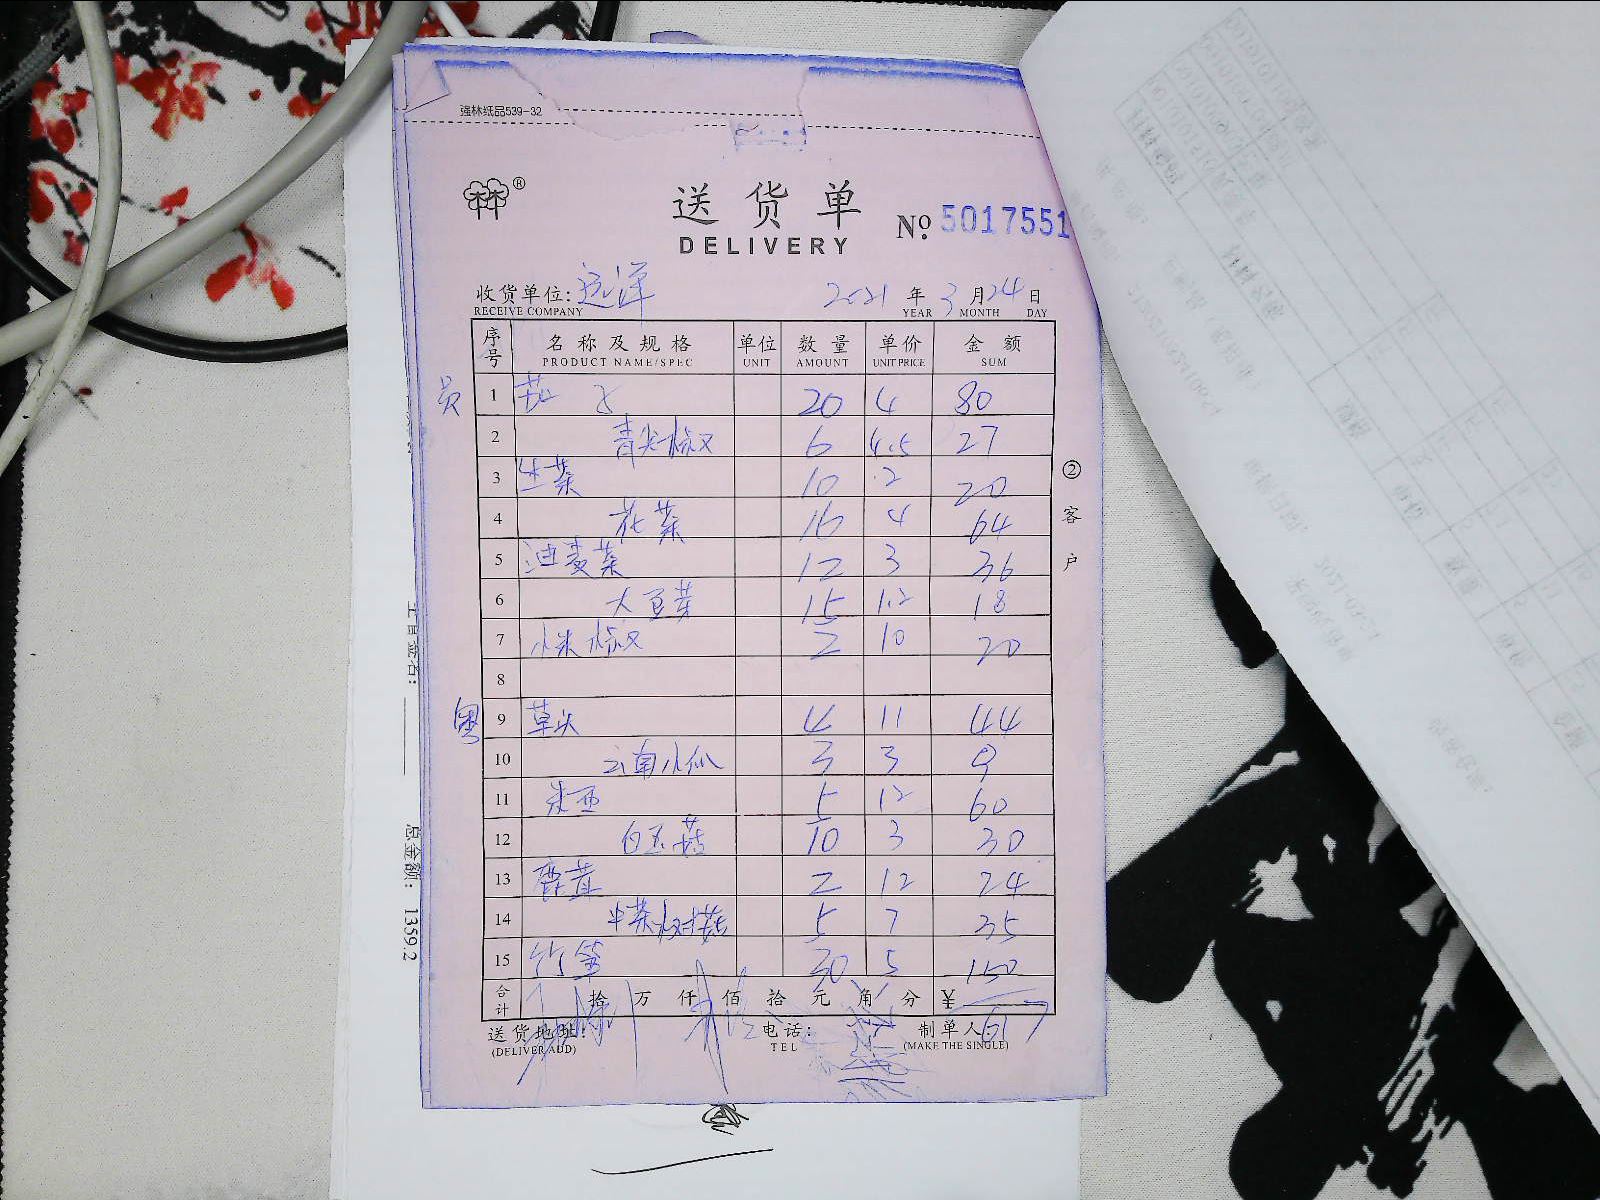 强林纸品539-32
送货单
DELIVERY
No. 5017551
收货单位: 远洋 2021 年 3 月 24 日
RECEIVE COMPANY YEAR MONTH DAY
序号 名称及规格 单位 数量 单价 金额
PRODUCT NAME/SPEC UNIT AMOUNT UNIT PRICE SUM
员 1 茄子 20 4 80
2 青尖椒 6 4.5 27
3 生菜 10 2 20
4 花菜 16 4 64
5 油麦菜 12 3 36
6 大豆芽 15 1.2 18
7 小米椒 2 10 20
8
粤 9 草头 4 11 44
10 云南小瓜 3 3 9
11 朱西 5 12 60
12 白玉菇 10 3 30
13 鹿茸 2 12 24
14 中茶树菇 5 7 35
15 竹笋 30 5 150
合计 拾 万 仟 佰 拾 元 角 分 ¥ 617
送货地址: 电话: 制单人:
(DELIVER AUD) TEL (MAKE THE SINGLE)
②客户
总金额: 1359.2